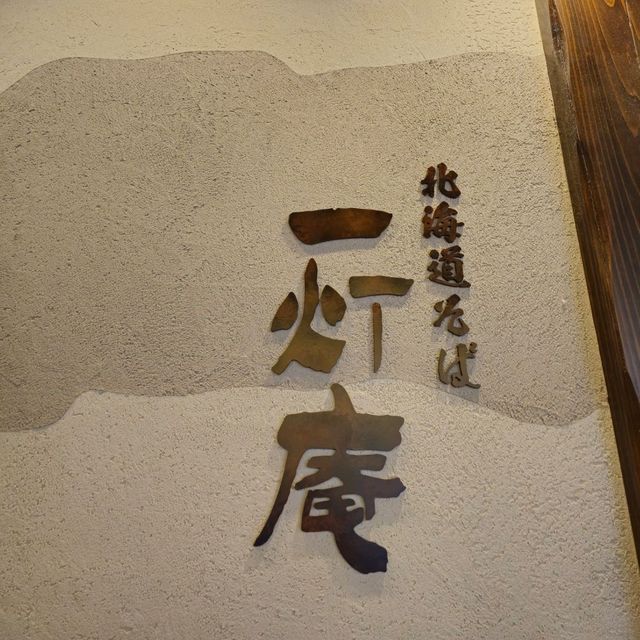 北海道そば
一灯庵